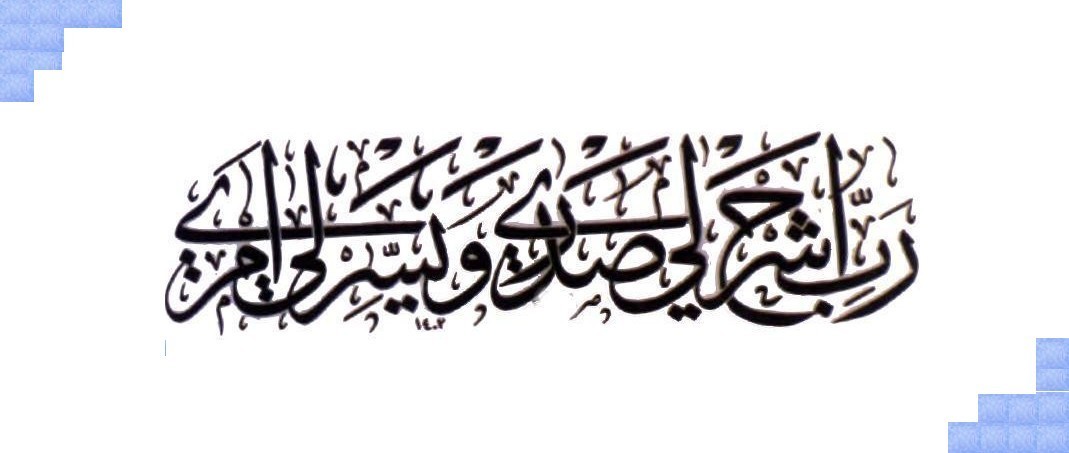 رب اشرح لي صدري ويسر لي أمري
١٤٠٢